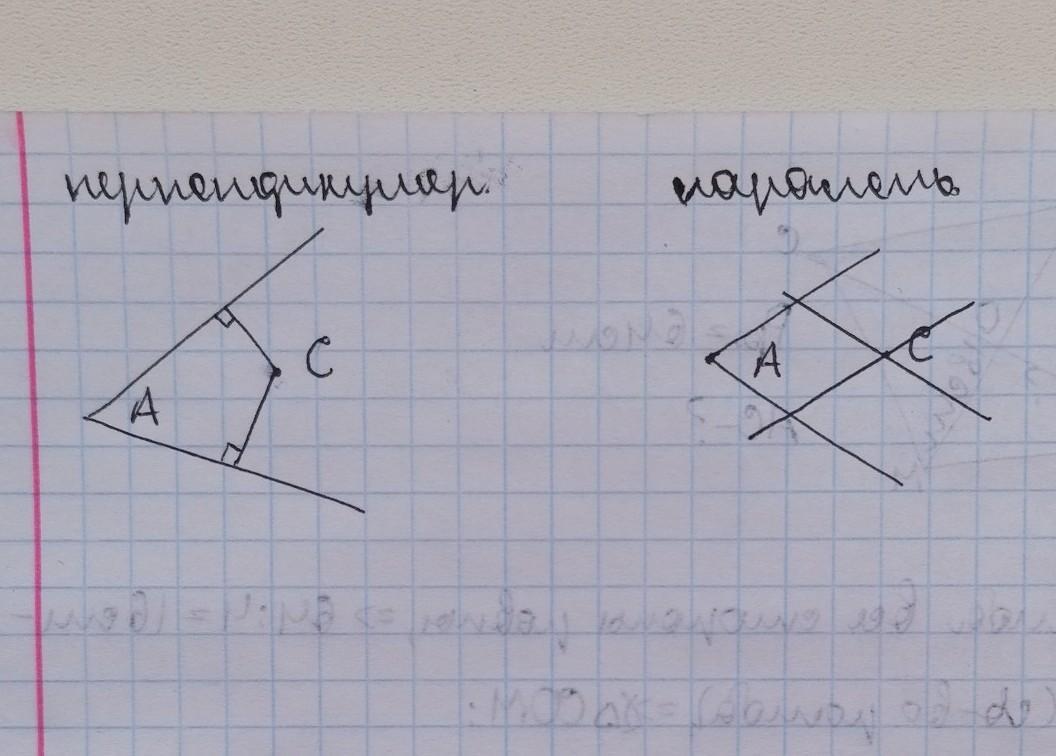 перпендикуляр. паралель
A C
A C